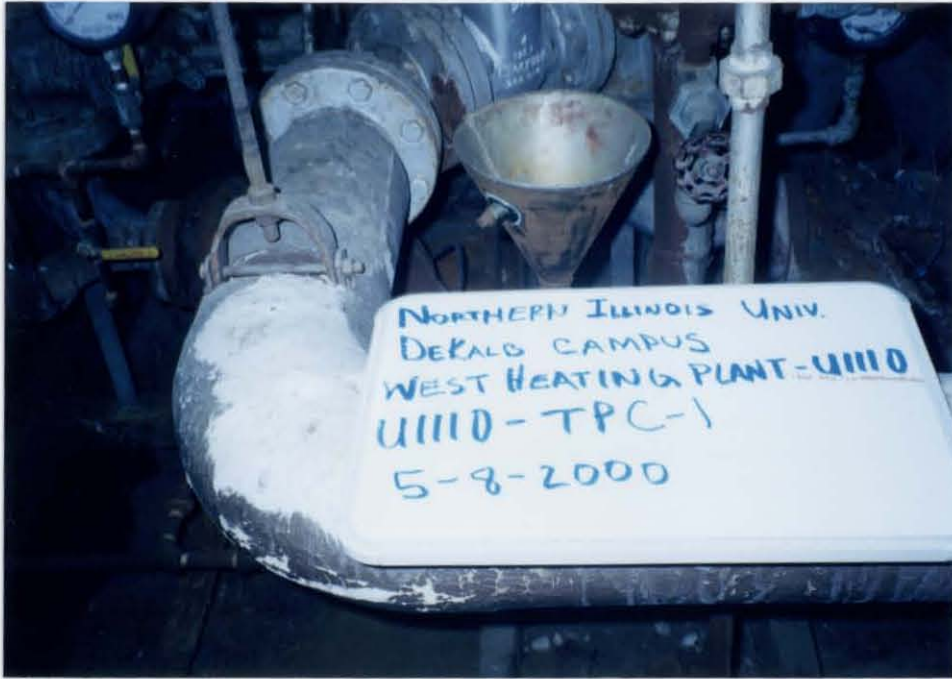 NORTHERN ILLINOIS UNIV.
DEKALB CAMPUS
WEST HEATING PLANT-U1110
U1110-TPC-1
5-8-2000